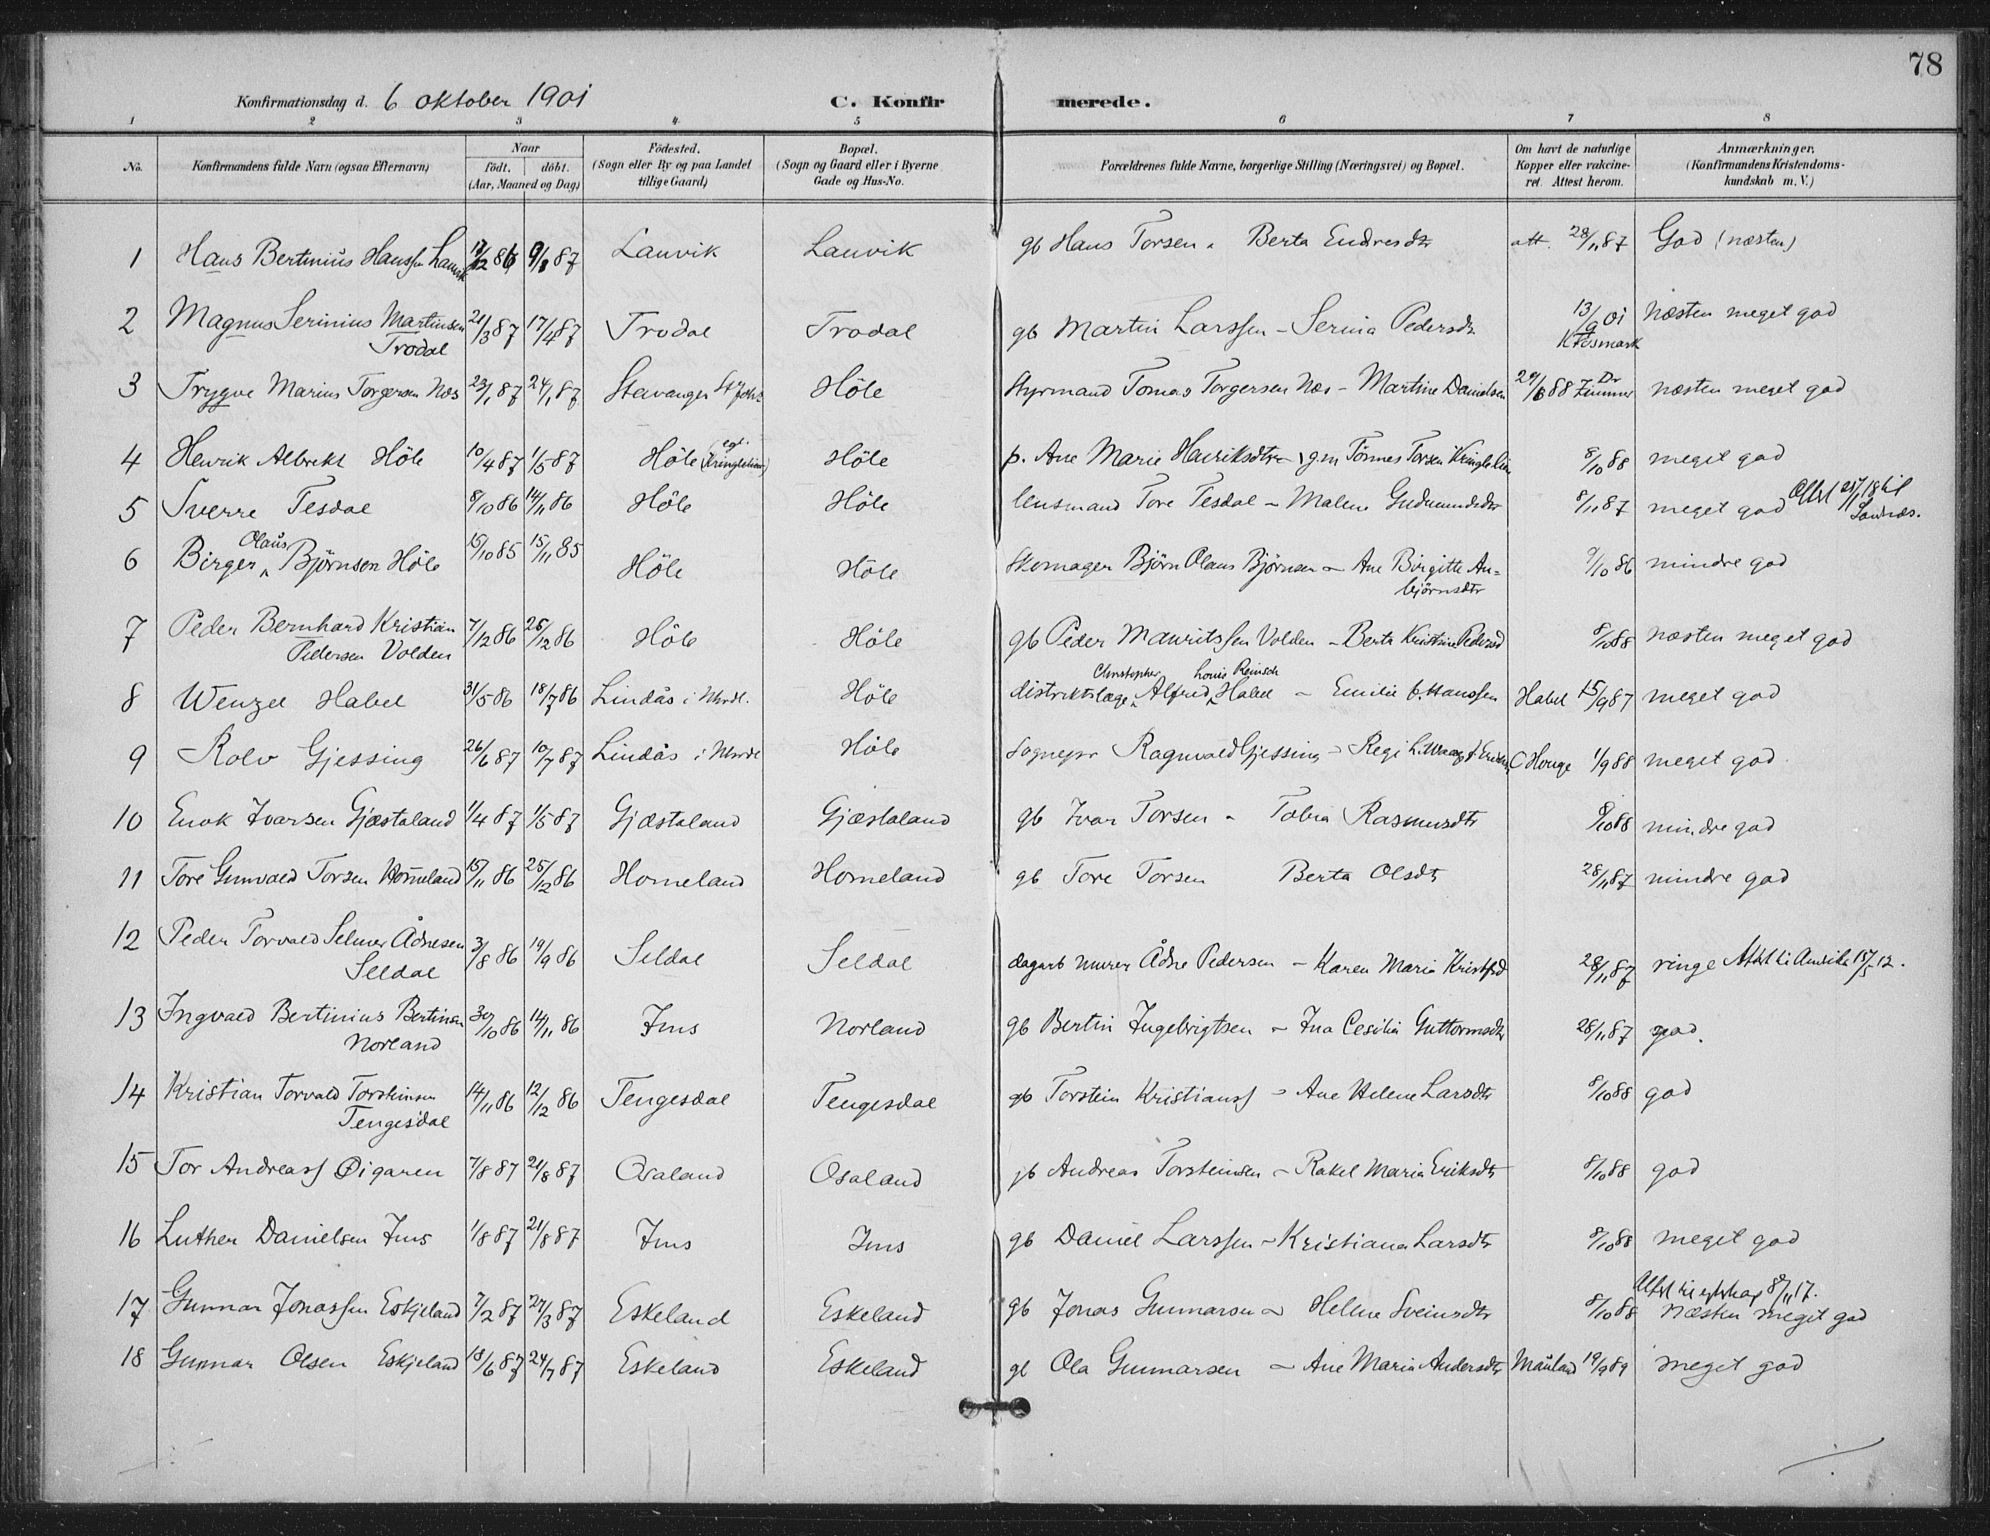 78
Konfirmationsdag d. 6 oktober 1901 C. Konfirmerede.
1 2 3 4 5 6 7 8
No. Konfirmandens fulde Navn (ogsaa Efternavn) Naar født. døbt. (Aar, Maaned og Dag) Fødested. (Sogn eller By og paa Landet tillige Gaard) Bopæl. (Sogn og Gaard eller i Byerne Gade og Hus-No. Forældrenes fulde Navne, borgerlige Stilling (Næringsvei) og Bopæl. Om havt de naturlige Kopper eller vakcineret. Attest herom. Anmærkninger. (Konfirmandens Kristendomskundskab m. V.)
1 Hans Bertinius Hanssen Lauvik 17/12 86 9/1 87 Lauvik Lauvik gb Hans Torsen - Berta Endresdtr att. 28/11 87 God (næsten)
2 Magnus Serinius Martinsen Trodal 21/3 87 17/4 87 Trodal Trodal gb Martin Larssen - Serina Pedersdtr 13/9 01 næsten meget god
3 Trygve Marius Torgersen Næs 23/1 87 24/1 87 Stavanger St Joh. Høle Styrmand Tomas Torgersen Næs - Martine Danielsen 29/6 88 Dr Zimmer næsten meget god
4 Henrik Albrekt Høle 10/4 87 1/5 87 Høle (egl. Kringlelien) Høle p. Ane Marie Henriksdtr - gm Tønnes Torsen Kringlelien 8/10 88 meget god
5 Sverre Tesdal 8/10 86 14/11 86 Høle Høle lensmand Tore Tesdal - Malene Gudmundsdtr 8/11 87 meget god Attst 25/1 18 til Sandnæs.
6 Birger Olaus Bjørnsen Høle 15/10 85 15/11 85 Høle Høle Skomager Bjørn Olaus Bjørnsen - Ane Birgitte Anbjørnsdtr 9/10 86 mindre god
7 Peder Bernhard Kristian Pedersen Volden 7/12 86 26/12 86 Høle Høle gb Peder Mauritssen Volden - Berta Kristine Pedersd 8/10 88 næsten meget god
8 Wenzel Habel 31/5 86 18/7 86 Lindås i Nhrdl. Høle distriktslæge Christopher Alfred Louis Reinsch Habel - Emilie f. Hanssen Habel 15/9 87 meget god
9 Rolv Gjessing 26/6 87 10/7 87 Lindås i Nhrdl Høle Sognepr Ragnvald Gjessing - Regi L. Waage f. C Houge 1/9 88 meget god
10 Enok Ivarsen Gjæstaland 1/4 87 1/5 87 Gjæstaland Gjæstaland gb Ivar Torsen - Tobia Rasmusdtr 8/10 88 mindre god
11 Tore Gunvald Torsen Homeland 15/11 86 25/12 86 Homeland Homeland gb Tore Torsen Berta Olsdtr 28/11 87 mindre god
12 Peder Torvald Selmer Ådnesen Seldal 3/8 86 19/9 86 Seldal Seldal dagarb murer Ådne Pedersen - Karen Maria Kristfrd 28/11 87 ringe Attst til Amerika 15/5 12.
13 Ingvald Bertinius Bertinsen Norland 30/10 86 14/11 86 Ims Norland gb Bertin Ingebrigtsen - Ina Cesilia Guttormsdtr 28/11 87 god.
14 Kristian Torvald Torsteinsen Tengesdal 14/11 86 12/12 86 Tengesdal Tengesdal gb Torstein Kristianss - Ane Helene Larsdtr 8/10 88 god
15 Tor Andreass Øigaren 7/8 87 21/8 87 Osaland Osaland gb Andreas Torsteinsen - Rakel Maria Eriksdtr 8/10 88 god
16 Luther Danielsen Ims 1/8 87 21/8 87 Ims Ims gb Daniel Larssen - Kristiana Larsdtr 8/10 88 meget god
17 Gunnar Jonassen Eskjeland 7/2 87 27/3 87 Eskeland Eskeland gb Jonas Gunnarsen - Helene Sveinsdtr 8/10 88 Attst til egteskap 8/11 17. næsten meget god
18 Gunnar Olsen Eskjeland 18/6 87 24/7 87 Eskeland Eskeland gb Ola Gunnarsen - Ane Maria Andersdtr Mauland 19/9 89 meget god